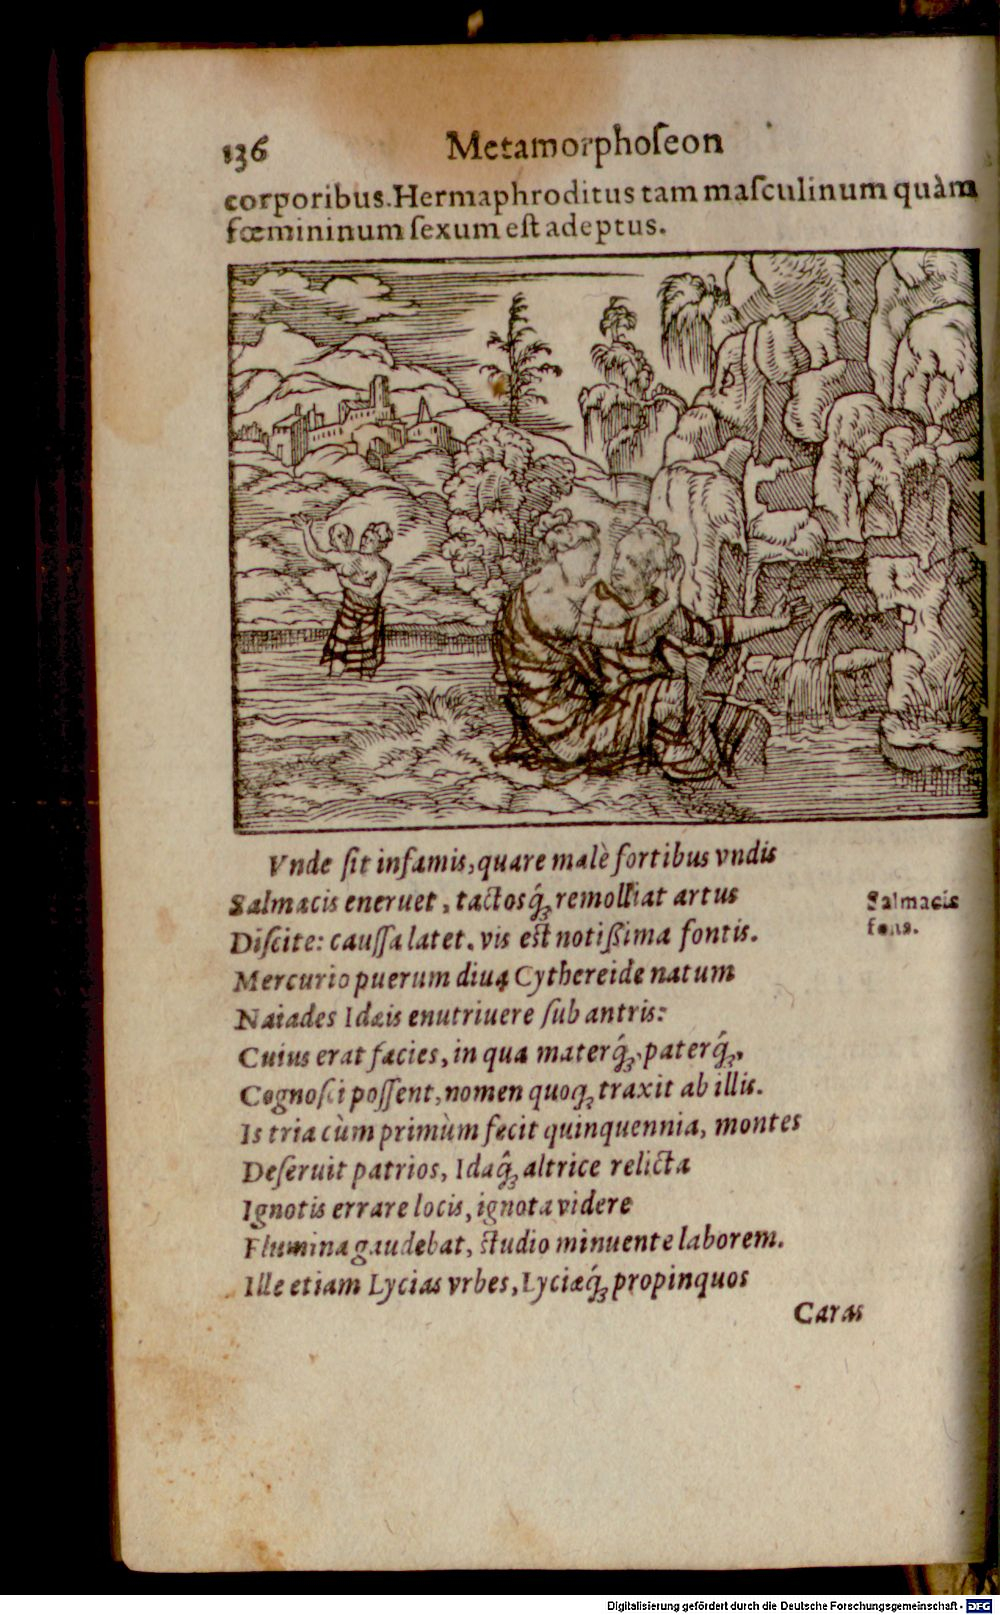 136 Metamorphoſeon
corporibus. Hermaphroditus tam maſculinum quàm
fœmininum ſexum eſt adeptus.
Vnde ſit infamis, quare malè fortibus vndis
Salmacis eneruet, tactosq́; remolliat artus
Salmacis
fons.
Diſcite: cauſſa latet. vis eſt notißima fontis.
Mercurio puerum diuę Cythereide natum
Naiades Idæis enutriuere ſub antris:
Cuius erat facies, in qua materq́;, paterq́;,
Cognoſci poſſent, nomen quoq; traxit ab illis.
Is tria cùm primùm fecit quinquennia, montes
Deſeruit patrios, Idaq̂; altrice relicta
Ignotis errare locis, ignota videre
Flumina gaudebat, ſtudio minuente laborem.
Ille etiam Lycias vrbes, Lyciæq́; propinquos
Caras
Digitalisierung gefördert durch die Deutsche Forschungsgemeinschaft - DFG